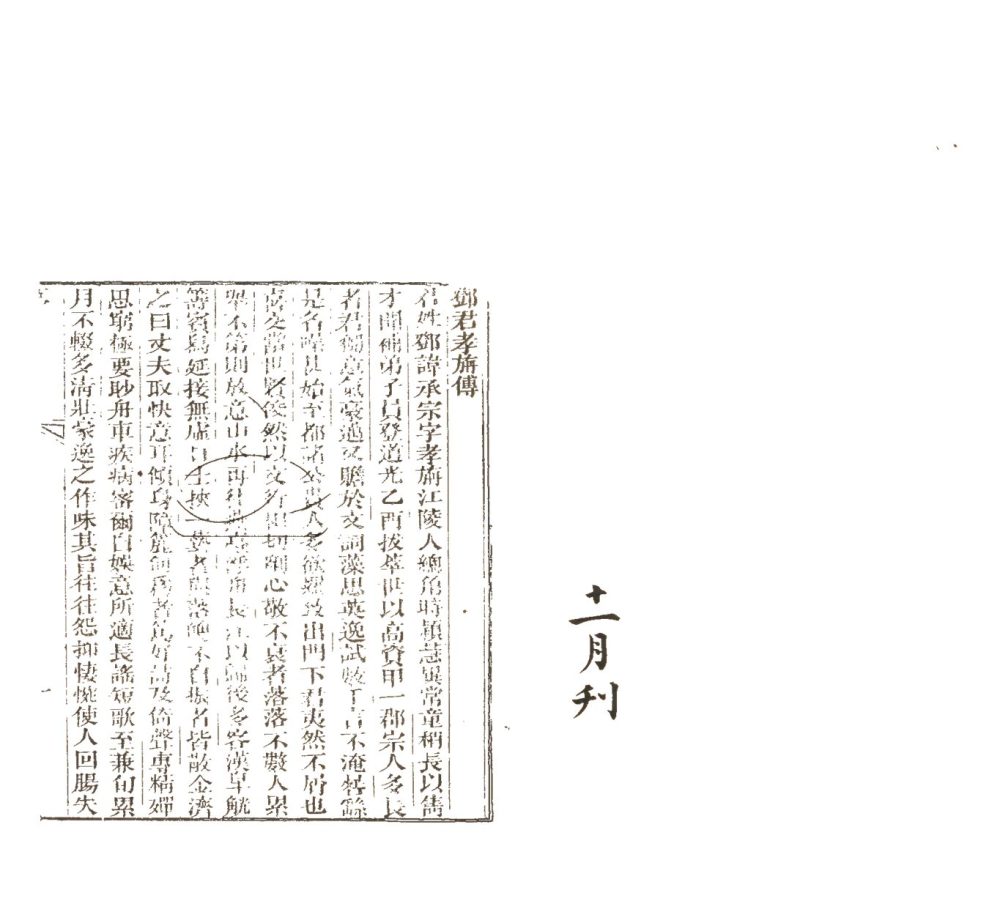 十一月刋
鄧君孝旃傳
君姓鄧諱承宗字孝旃江陵人總角時穎慧異常童稍長以雋
才聞補弟子員登道光乙酉拔萃世以高資甲一郡宗人多長
者君獨意氣豪邁又贍於文詞藻思英逸試數千言不淹晷繇
是名噪甚始至都諸公貴人多欲羅致出門下君夷然不屑也
喜交當世賢俊然以文行相切劘心敬不衰者落落不數人累
舉不第則放意山水再往 長江以歸後多客漢皋觥
籌賓寫延接無虛日士挾一藝者與落魄不自振者皆散金濟
之曰丈夫取快意耳傾身障簏何爲者篤好詩及倚聲專精殫
思窮極要眇舟車疾病密爾自娛意所適長謠短歌至兼旬累
月不輟多淸壯豪逸之作味其旨往往怨抑悽惋使人回腸失